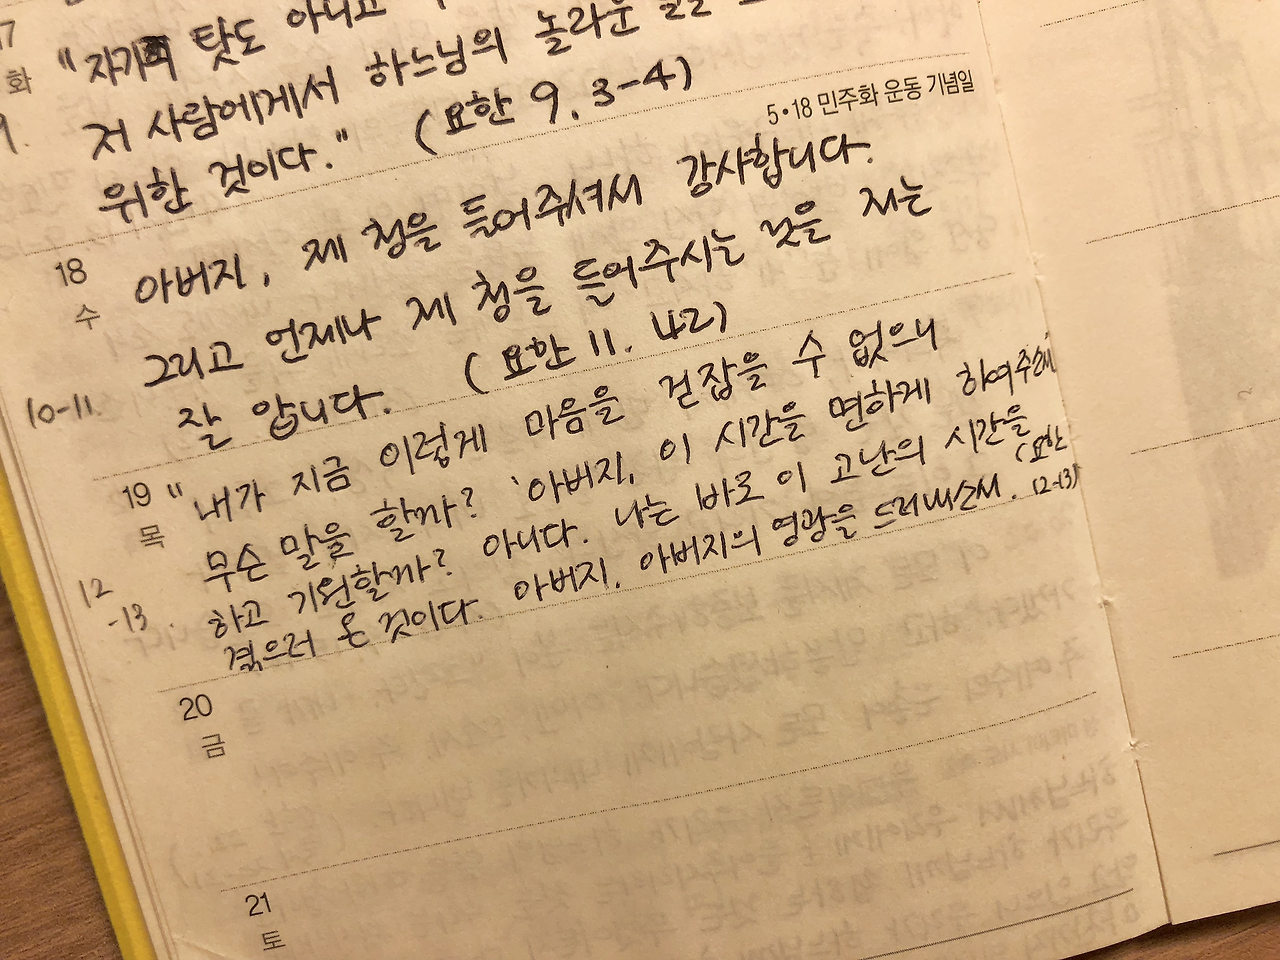 17
화
"자기의 탓도 아니고
저 사람에게서 하느님의 놀라운
9.
위한 것이다." (요한 9. 3-4)
5·18 민주화 운동 기념일
18
수
아버지, 제 청을 들어주셔서 감사합니다.
그리고 언제나 제 청을 들어주시는 것을 저는
10-11.
잘 압니다. (요한 11. 42)
19
목
"내가 지금 이렇게 마음을 걷잡을 수 없으니
무슨 말을 할까? '아버지, 이 시간을 면하게 하여주소서'
12
-13.
하고 기원할까? 아니다. 나는 바로 이 고난의 시간을
겪으러 온 것이다. 아버지, 아버지의 영광을 드러내소서. (요한 12-13)
20
금
21
토